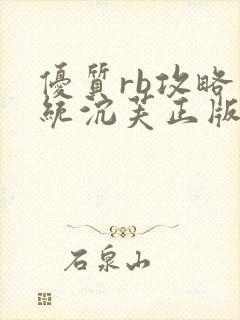 優質rb攻略
統沉芙正版
石泉山